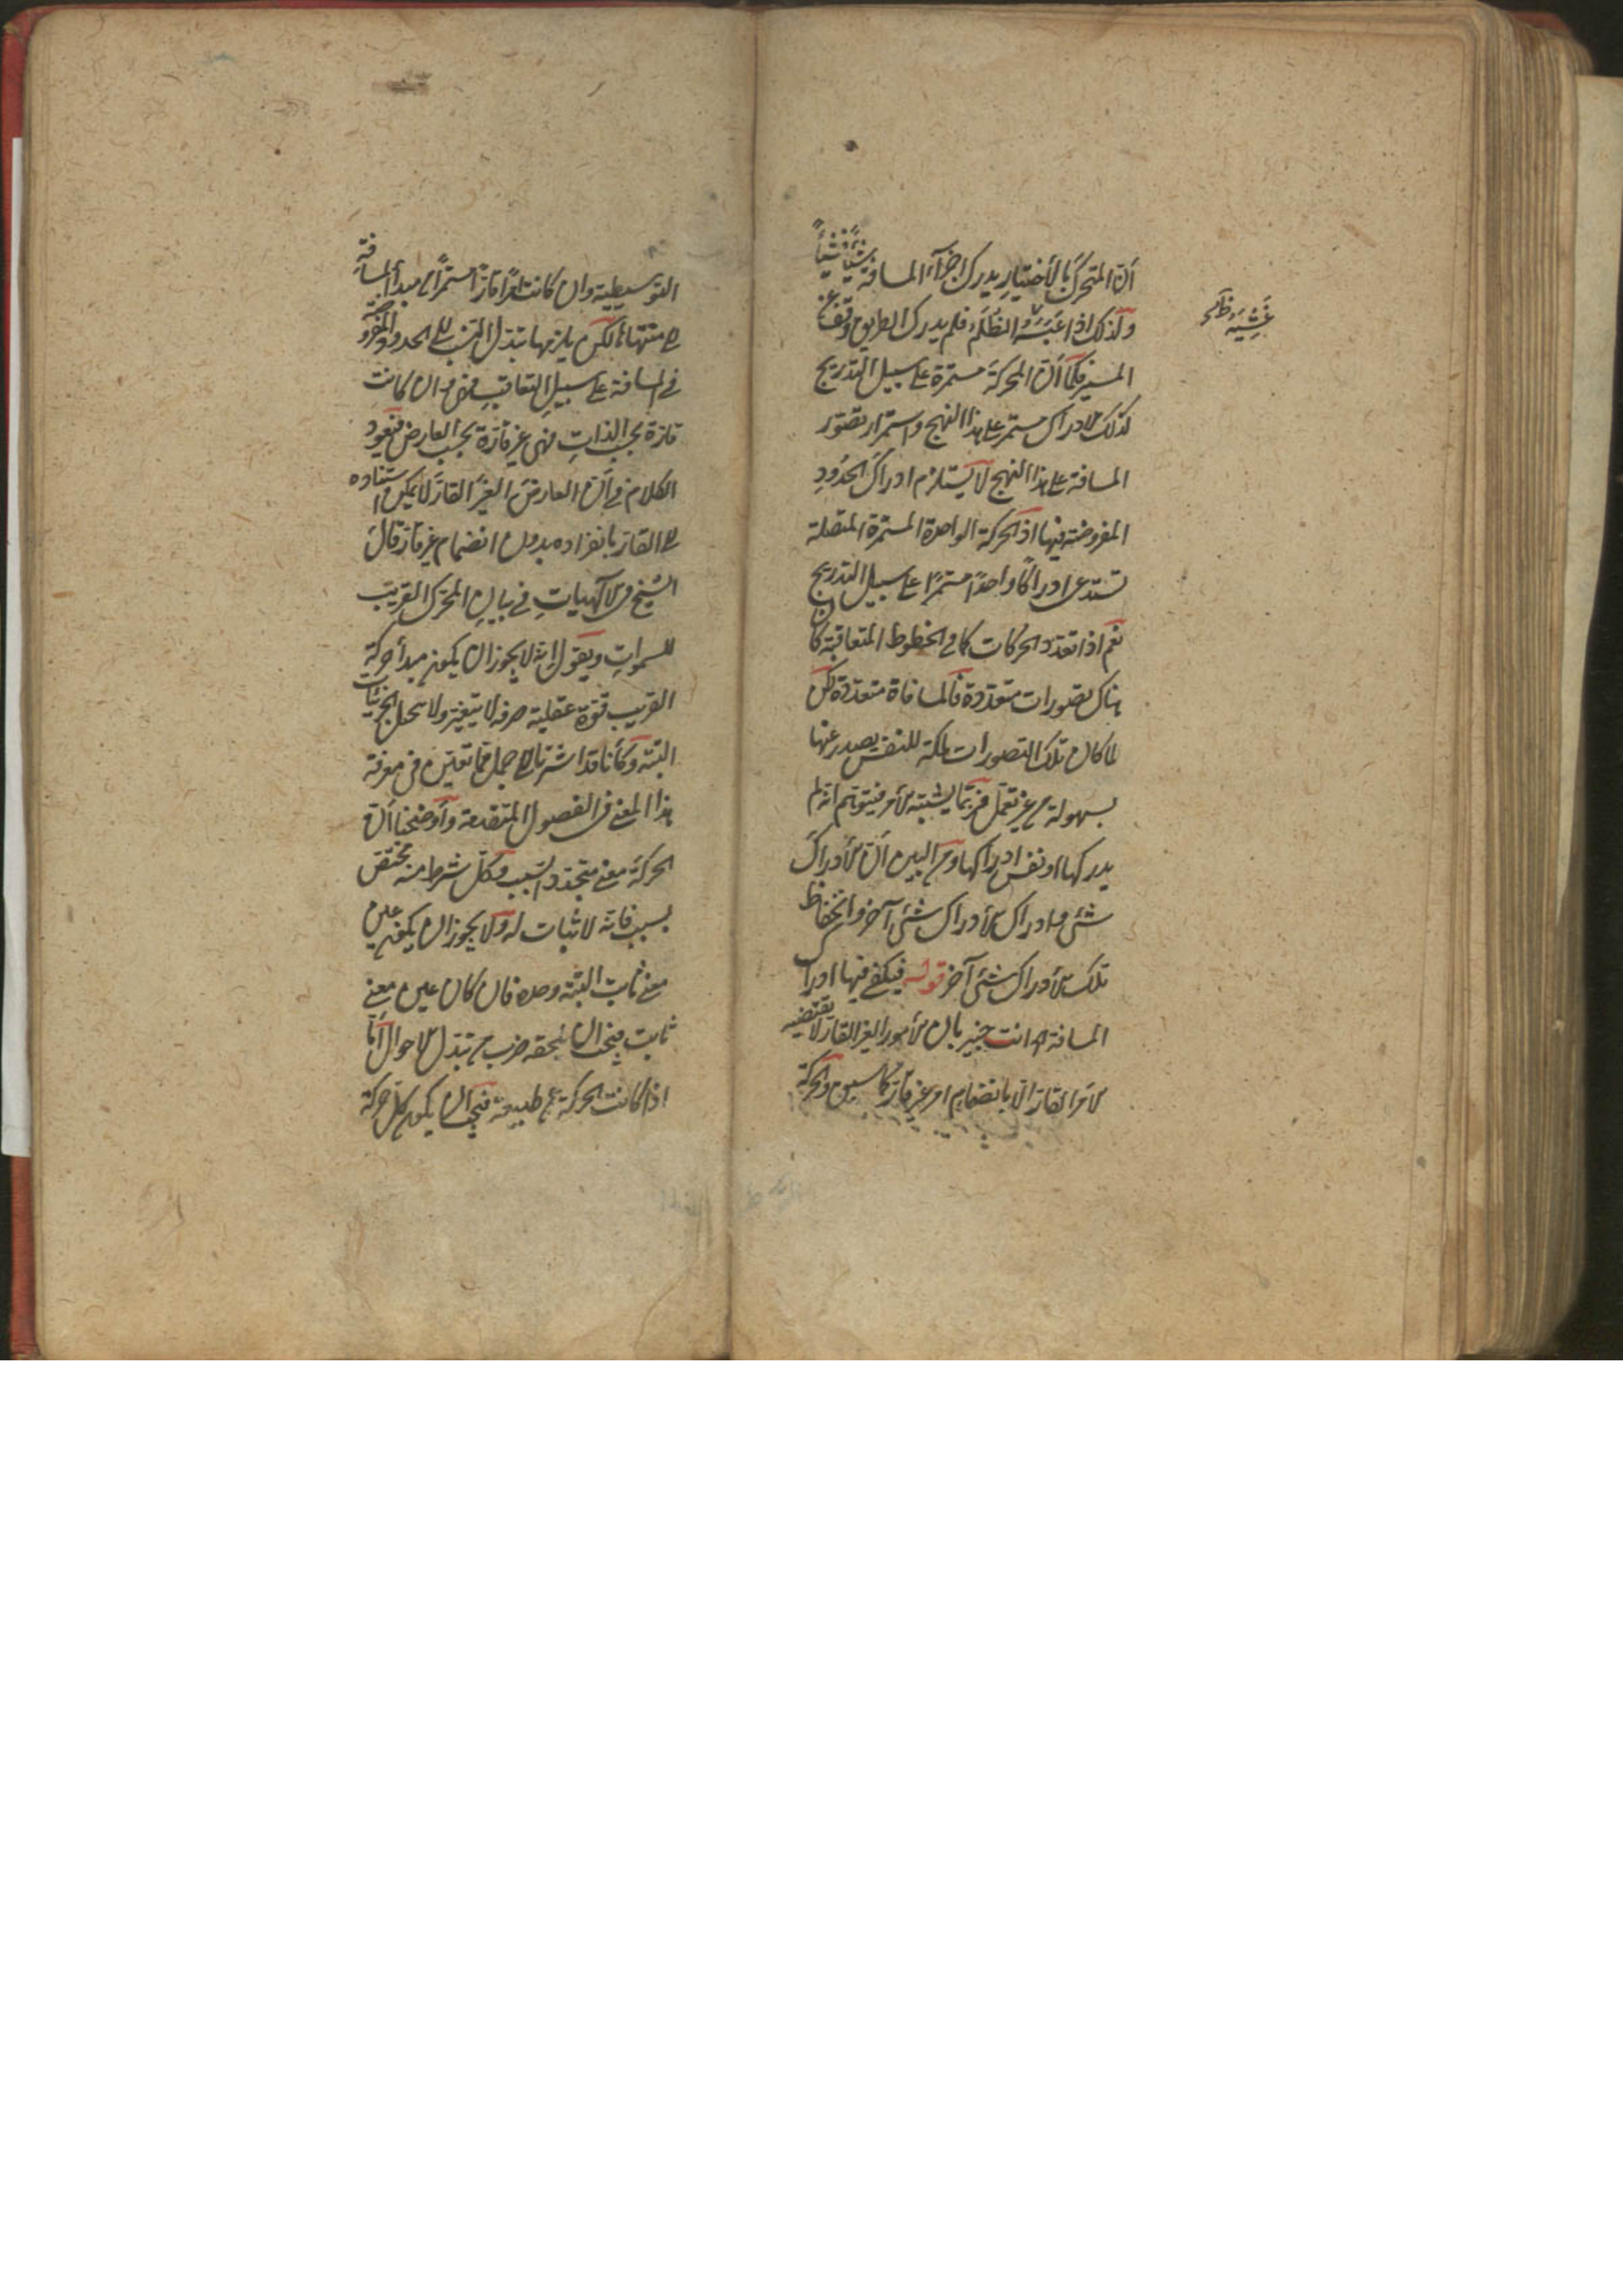 أن المتحرك بالأختيار يدرك اجزاء المسافة شيأ فشيأ
ولذلك اذا غشيه الظلم فلم يدرك الطريق وقف عن
غشيه ظ
السير فكما أن الحركة مستمرة على سبيل التدريج
كذلك الادراك مستمر على هذا النهج واستمرار تصور
المسافة على هذا النهج لا يستلزم ادراك الحدود
المفروضة فيها اذ الحركة الواحدة المستمرة المتصلة
تستدعى ادراكا واحدا مستمرا على سبيل التدريج
نعم اذا تعدد الحركات كما فى الخطوط المتعاقبة كان
هناك تصورات متعددة فالمسافة متعددة لكن
لما كان تلك التصورات ملكة للنفس يصدر عنها
بسهولة من غير تعمل فربما يشتبه الأمر فيتوهم انه لم
يدركها او نفس ادراكها ومن البين أن الأدراك
شئ وادراك الأدراك شئ آخر وانحفاظ
تلك الأدراك شئ آخر قوله فيكفى فيها ادراك
المسافة اه انت خبير بان الأمور الغير القار لا يقتضيه
الأمر القار الا بانضمام امر غير قار كما سبق والحركة
التوسيطية وان كانت امرا قارا مستمرا من مبدأ المسافة
الى منتهاها لكن يلزمها تبدل النسب الى الحدود المفروضة
فى المسافة على سبيل التعاقب فهى وان كانت
قارة بحسب الذات فهى غير قارة بحسب العارض فيعود
الكلام فى أن العارض الغير القار لا يمكن استناده
الى القار بانفراده بدون انضمام غير قار قال
الشيخ فى الآلهيات فى بيان المحرك القريب
للسموات ويقول انه لا يجوز ان يكون مبدأ حركة
القريب قوة عقلية صرفه لا يتغير ولا يتخيل الجزئيات
البتة وكأنا قد اشرنا الى جمل مما تعين فى معرفة
هذا المعنى فى الفصول المتقدمة وأوضحنا أن
الحركة معنى متجدد النسب وكل شرط منه مختص
بسبب فانه لا ثبات له ولا يجوز ان يكون عن
معنى ثابت البتة وحده فان كان عن معنى
ثابت فيجب ان يلحقه ضرب من تبدل الاحوال أما
اذا كانت الحركة عن طبيعة فيجب ان يكون كل حركة